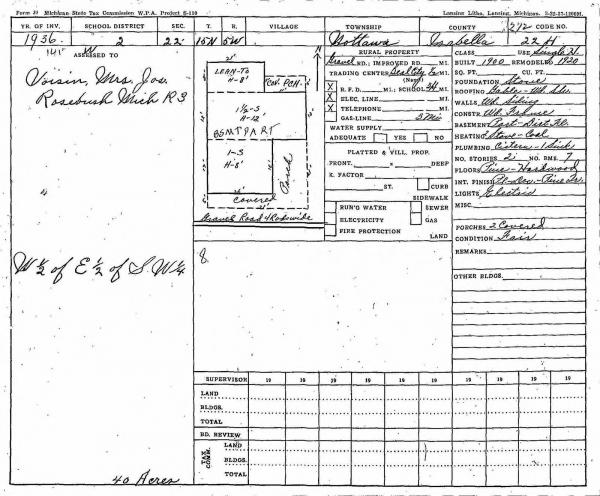 Form 30 Michigan State Tax Commission W.P.A. Project S-110
Lansing Litho, Lansing, Michigan.
YR. OF INV. SCHOOL DISTRICT SEC. T. R. VILLAGE TOWNSHIP COUNTY 272 CODE NO.
1936 2 22 15N 5W Nottawa Isabella 22 H
141 W
ASSESSED TO
Voisin, Mrs. Jos.
Rosebush Mich R3
W ½ of E ½ of S.W ¼
40 Acres
N
21'
LEAN-TO
H-8'
Cov. PCH.
1½-S
H-12'
BSMT PART
1-S
H-8'
Porch
16'
Covered
21'
Gravel Road 4 Rods wide
8
RURAL PROPERTY
Gravel RD.; IMPROVED RD. MI.
TRADING CENTER Beal City 6 MI.
(Name)
X R. F. D. MI.; SCHOOL ¾ MI.
X ELEC. LINE MI.
X TELEPHONE MI.
GAS-LINE 5 Mi
WATER SUPPLY
ADEQUATE YES NO
PLATTED & VILL. PROP.
FRONT. × DEEP
K. FACTOR
ST. CURB
SIDEWALK
RUN'G WATER SEWER
ELECTRICITY GAS
FIRE PROTECTION
LAND
CLASS USE Single H.
BUILT 1900 REMODELED 1920
SQ. FT. CU. FT.
FOUNDATION Stone
ROOFING Gable-Wd. Shs.
WALLS Wd. Siding
CONSTR. Wd. Frame
BASEMENT Part-Dirt Fl.
HEATING 1 Stove-Coal
PLUMBING Cistern-1 Sink
NO. STORIES 2 NO. RMS. 7
FLOORS Pine-Hardwood
INT. FINISH
LIGHTS Electric
MISC.
PORCHES 2 Covered
CONDITION Fair
REMARKS
OTHER BLDGS.
SUPERVISOR 19 19 19 19 19 19 19 19
LAND
BLDGS.
TOTAL
BD. REVIEW
TAX COMM.
LAND
BLDGS.
TOTAL